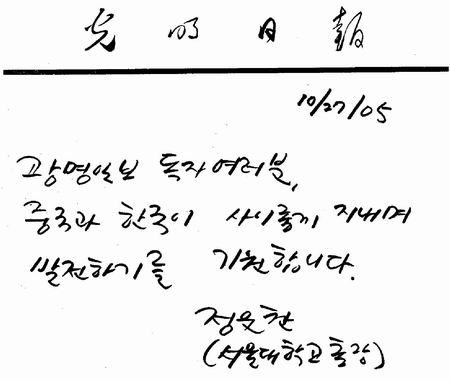 光明日報
10/27/05
광명일보 독자여러분,
중국과 한국이 사이좋게 지내며
발전하기를 기원합니다.
정운찬
(서울대학교 총장)